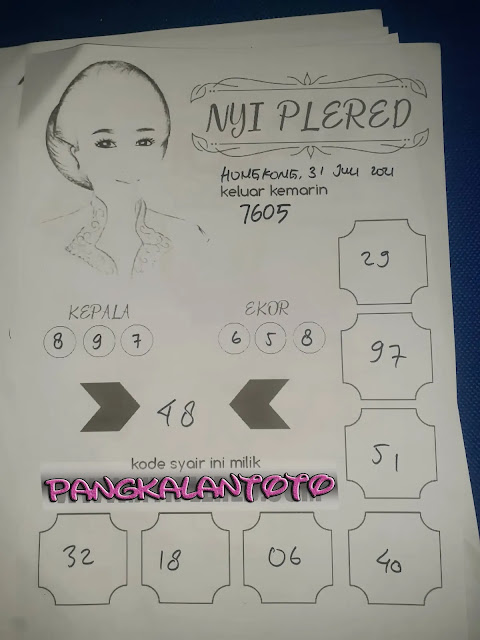 NYI PLERED
HONGKONG, 31 Juli 2021
keluar kemarin
7605
29
KEPALA
EKOR
8 9 7
6 5 8
97
48
51
kode syair ini milik
PANGKALANTOTO
32
18
06
40